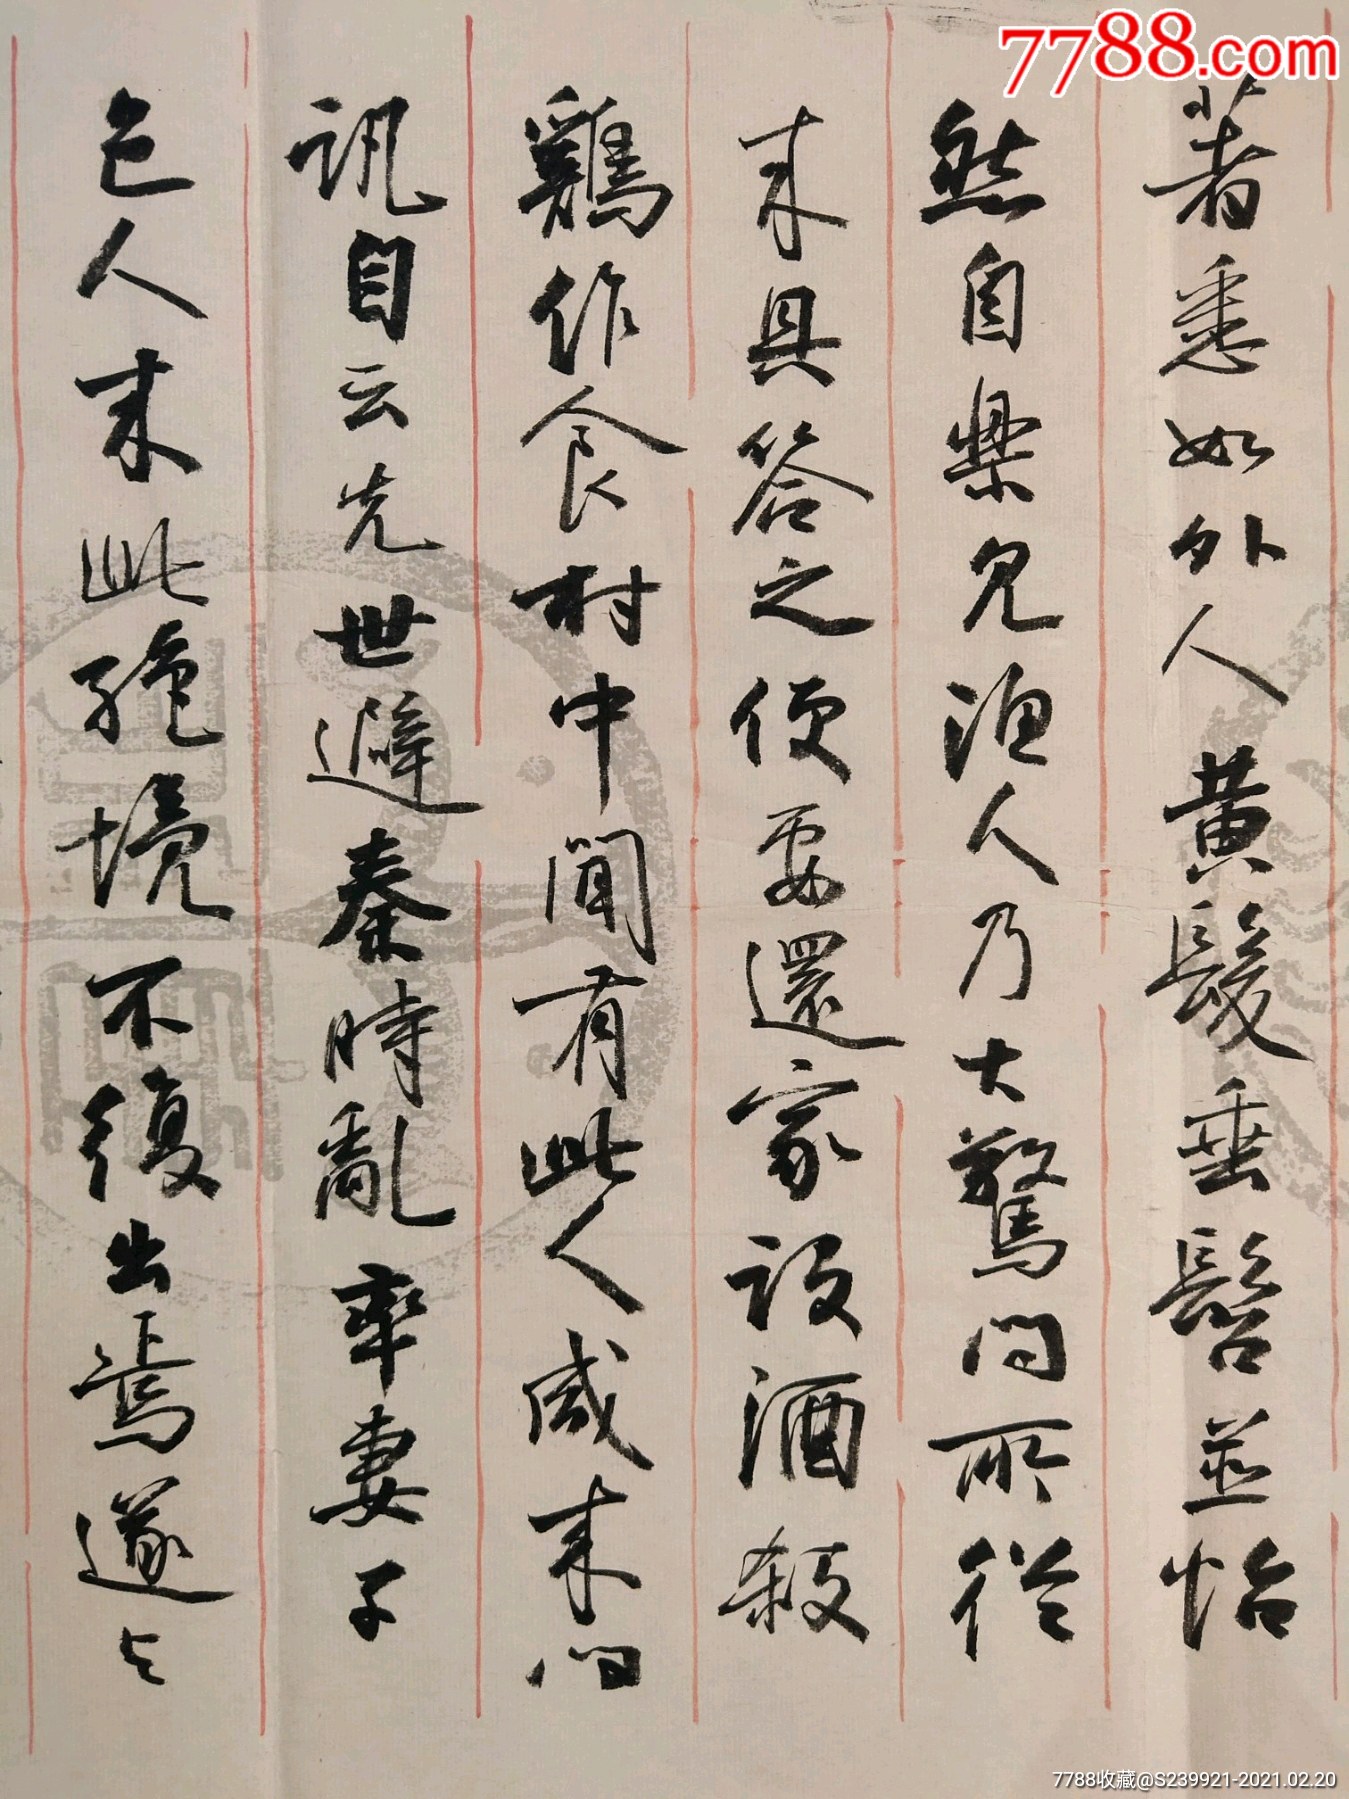 7788.com
著悉如外人黄髮垂髫並怡
然自樂見漁人乃大驚問所從
来具答之便要還家設酒殺
鷄作食村中聞有此人咸来问
訊自云先世避秦時亂率妻子
邑人来此絶境不復出焉遂与
7788收藏@S239921-2021.02.20